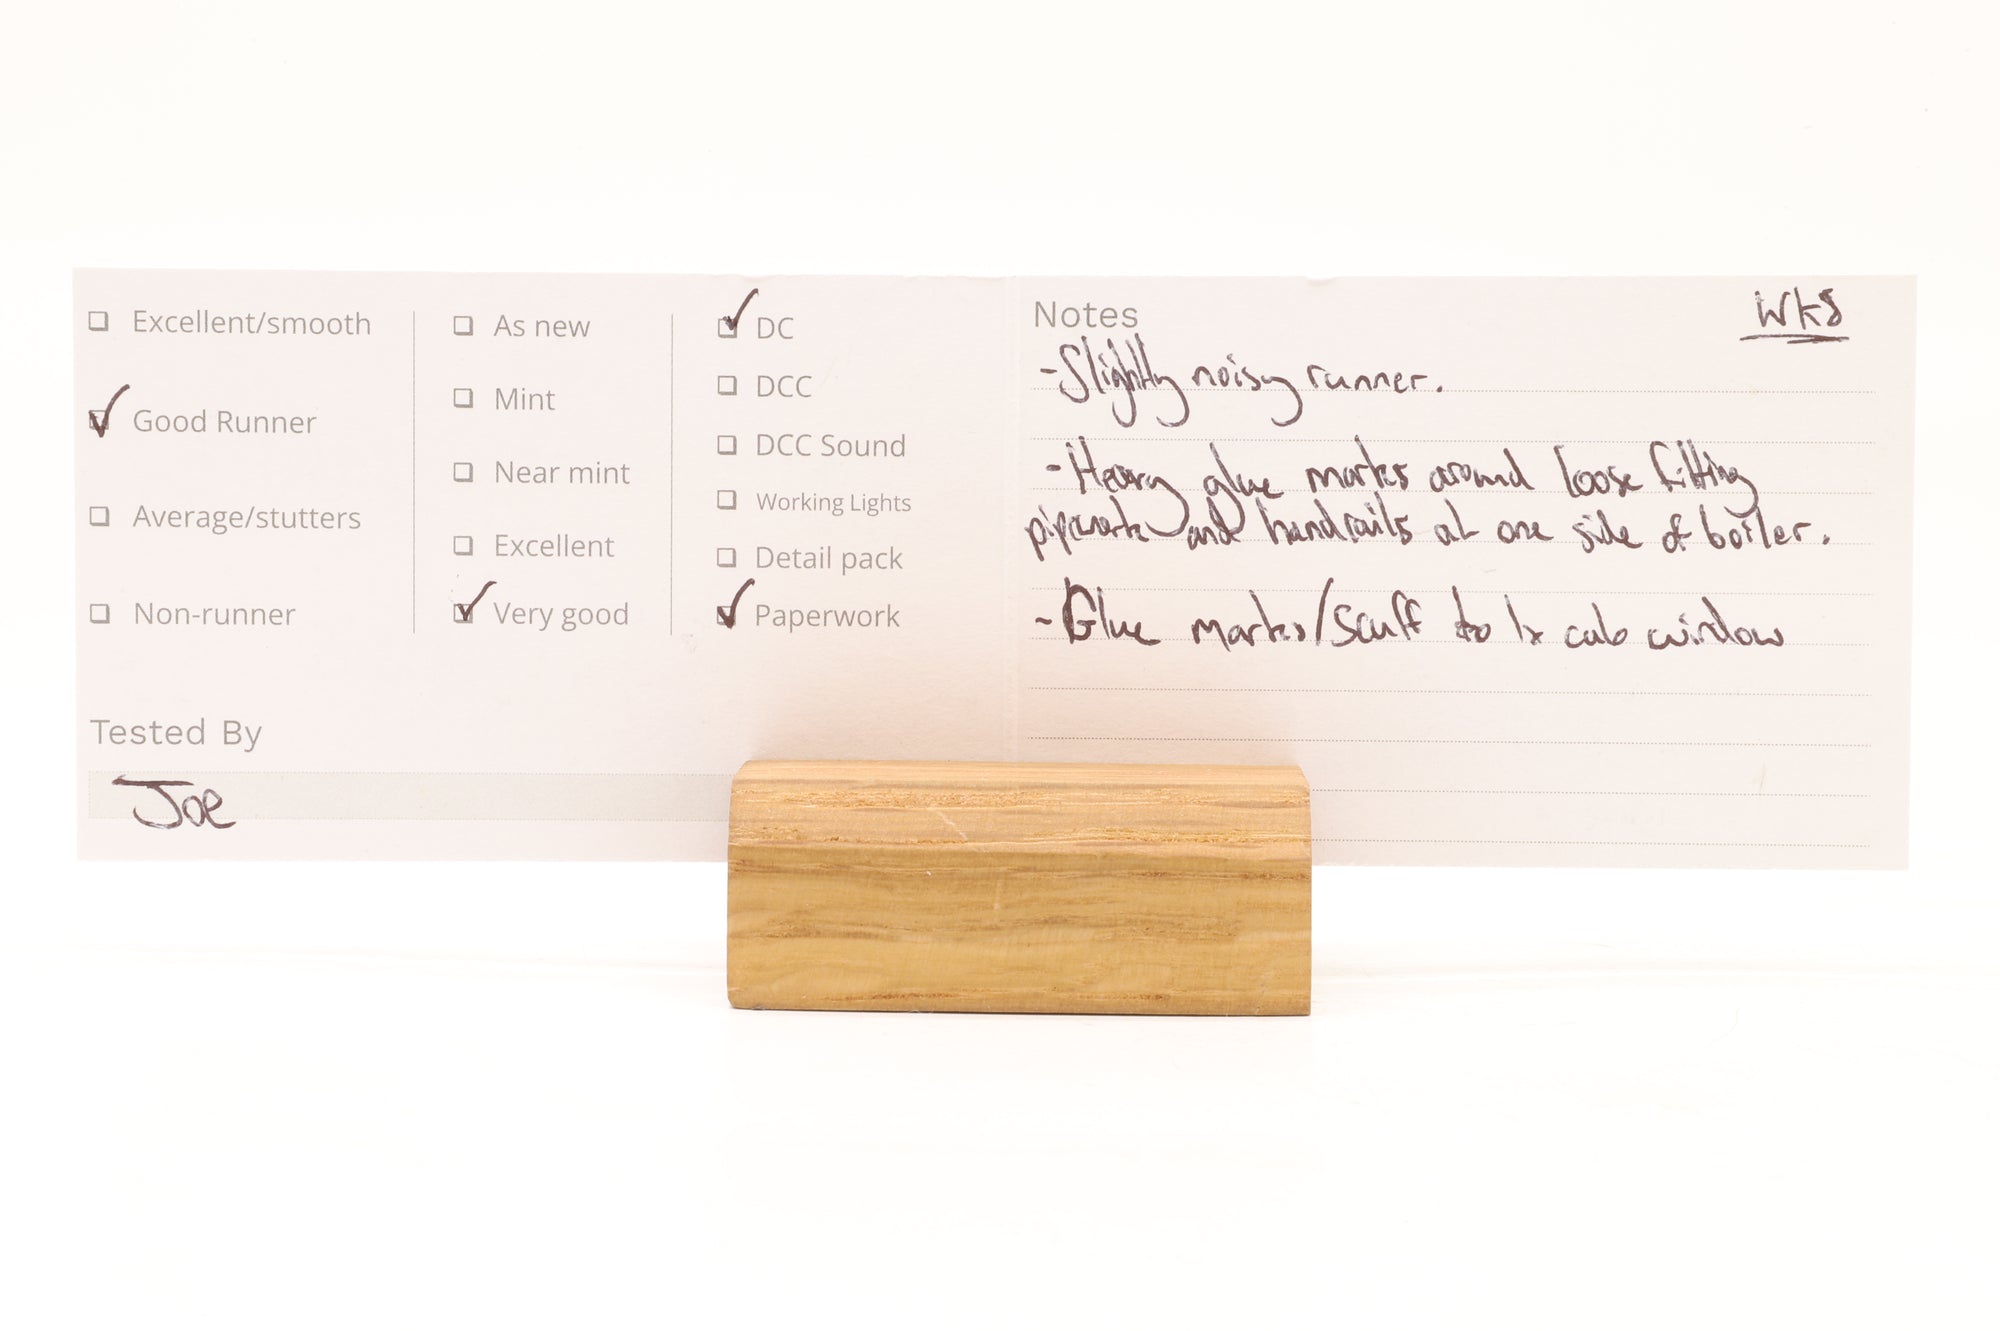 Excellent/smooth
Good Runner
Average/stutters
Non-runner
As new
Mint
Near mint
Excellent
Very good
DC
DCC
DCC Sound
Working Lights
Detail pack
Paperwork
Tested By
Joe
Notes
-Slightly noisy runner.
-Heavy glue marks around loose fitting
pipework and handrails at one side of boiler.
-Glue marks/scuff to 1x cab window